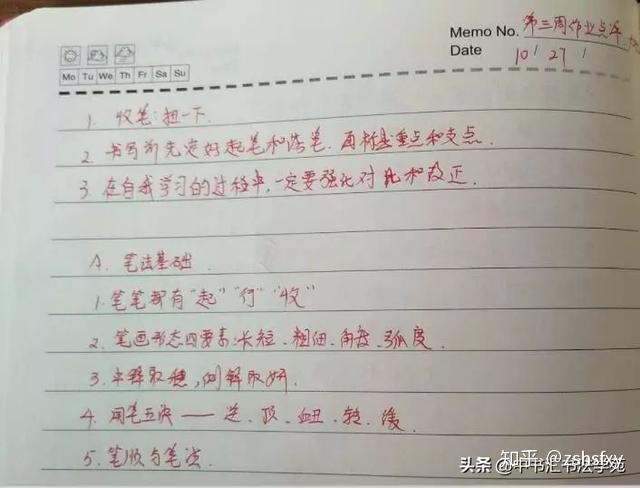 Memo No. 第三周作业点评.
Mo Tu We Th Fr Sa Su
Date 10 / 27 /
1. 收笔:扭一下.
2. 书写前先定好起笔和落笔. 两树是重点和支点.
3. 在自我学习的过程中,一定要强化对比和改正.
A. 笔法基础.
1. 笔笔都有"起""行""收"
2. 笔画形态四要素:长短、粗细、角度、弧度.
3. 平解取稳,侧解取妍.
4. 用笔五决——逆、顶、扭、转、缓.
5. 笔顺与笔法.
知乎 @zshsfxy
头条 @中书汇书法学苑